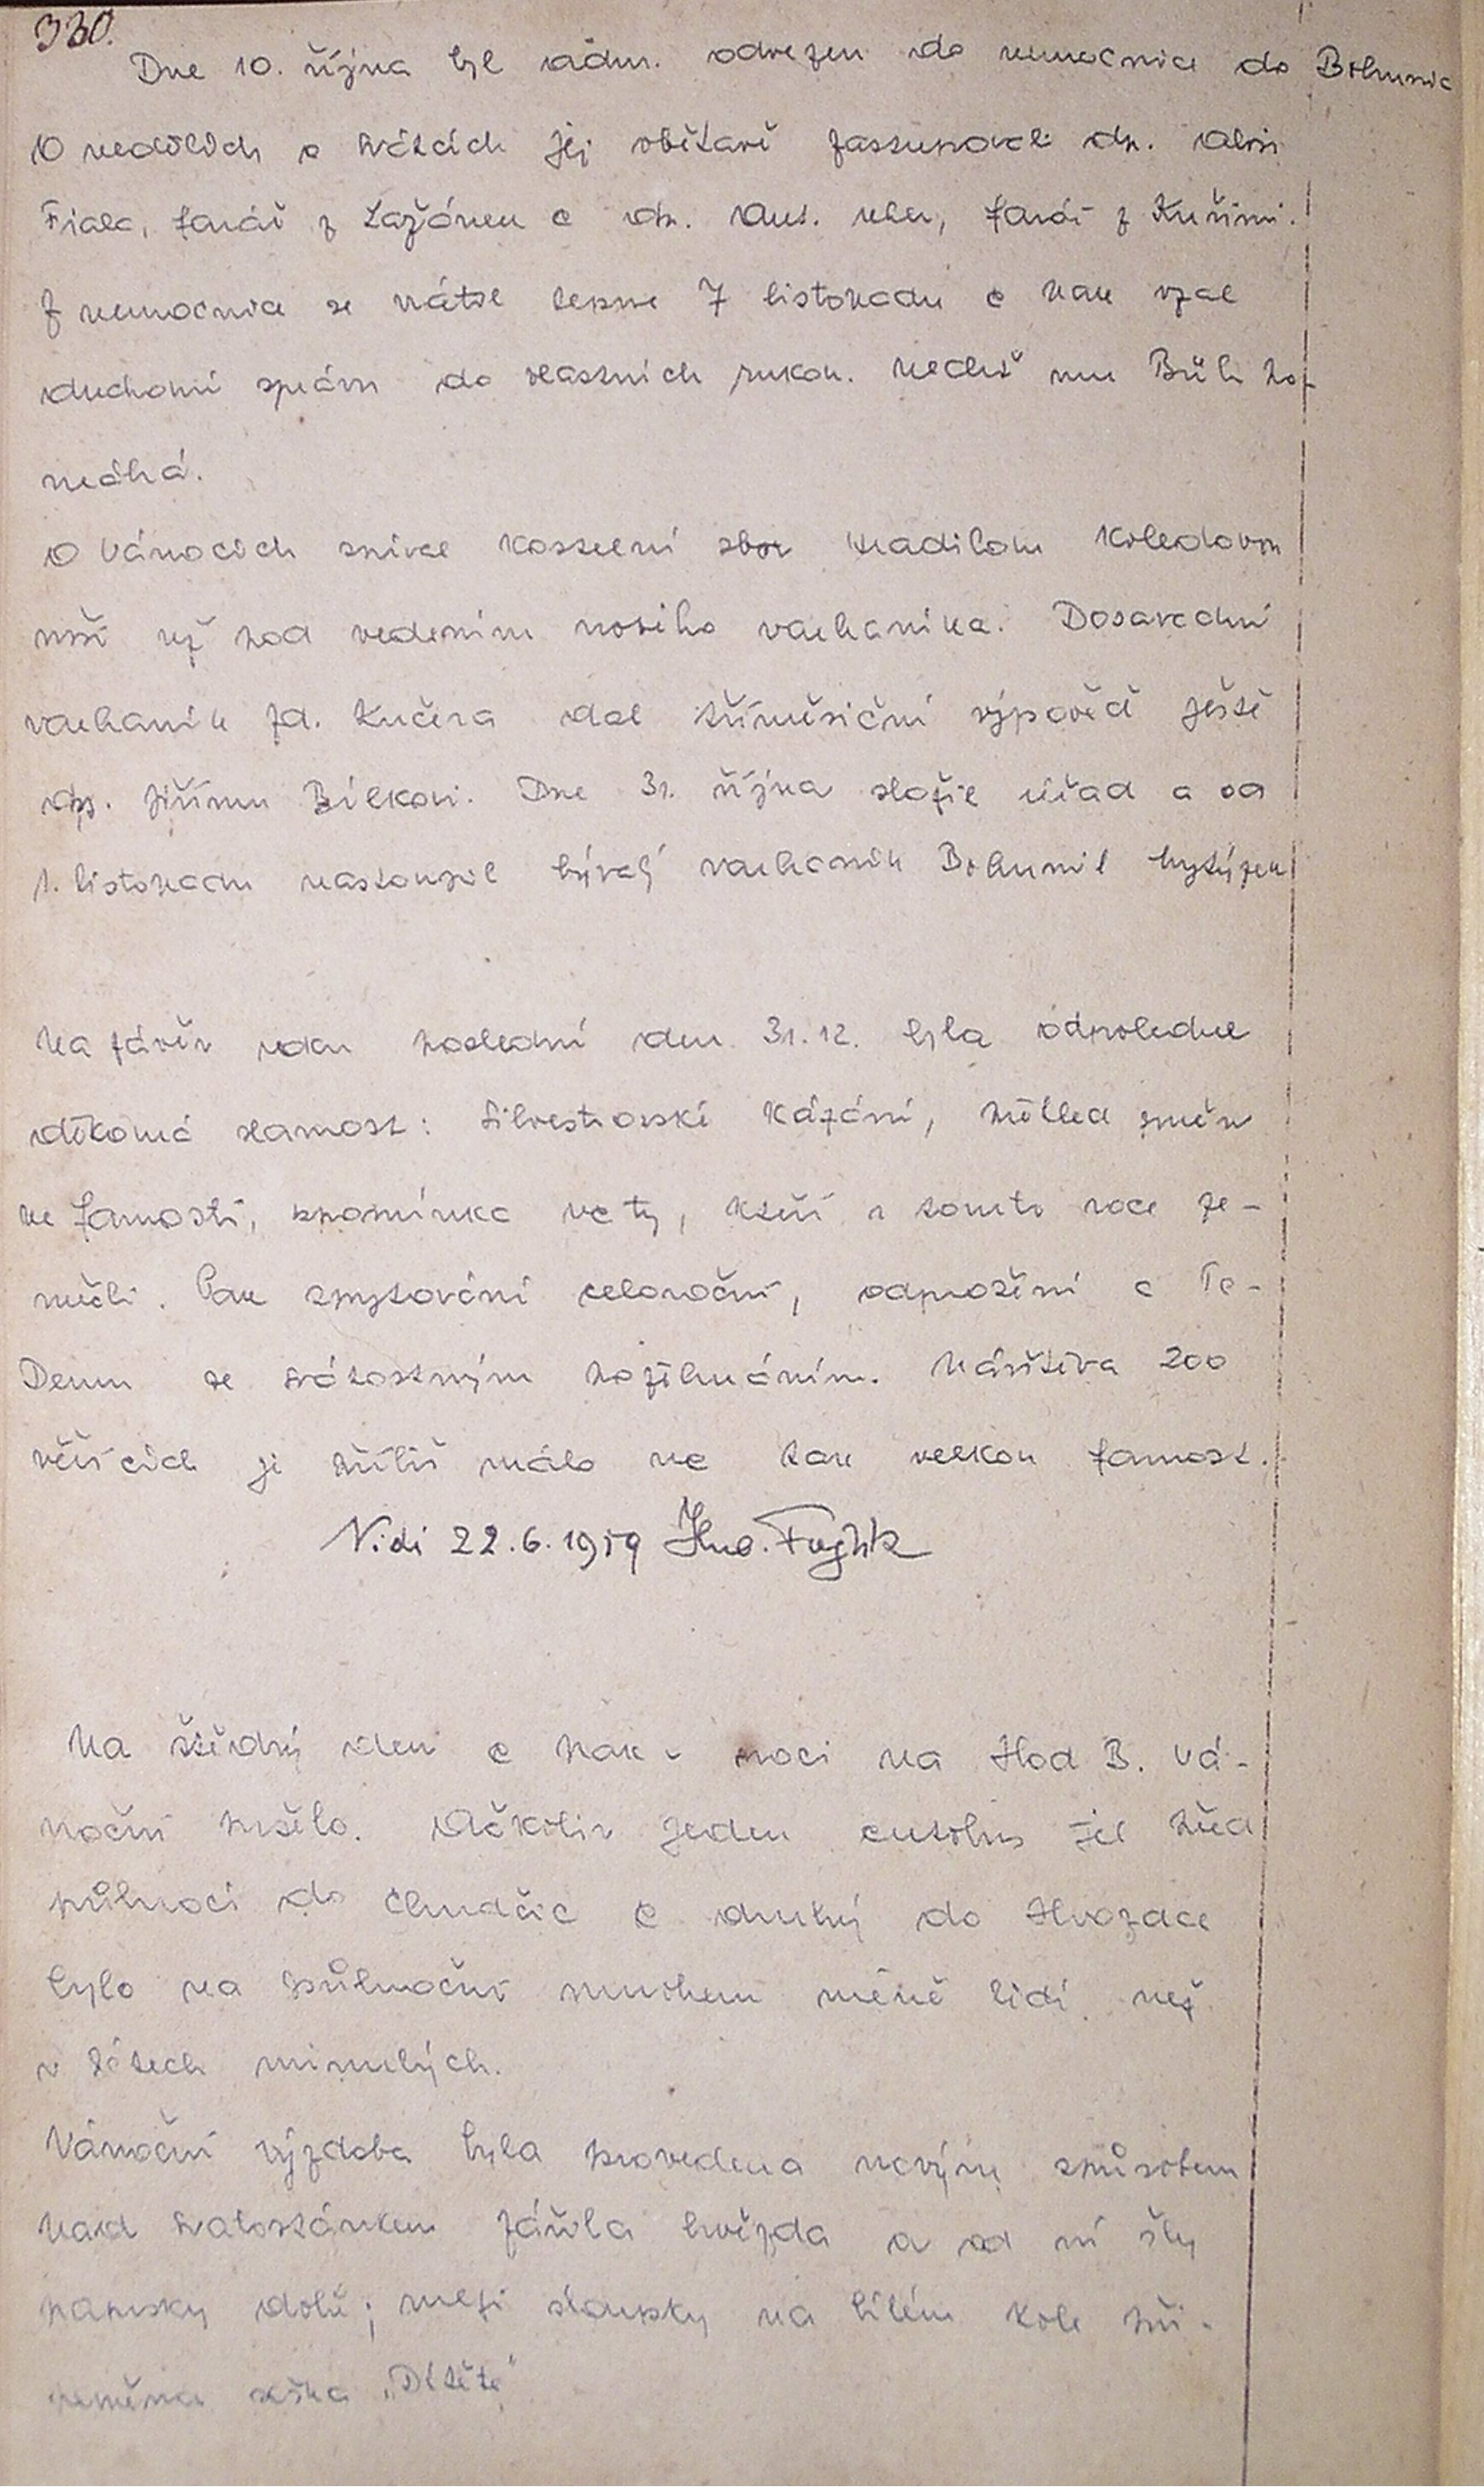 330.
Dne 10. října byl adm. odvezen do nemocnice do Bohunic
O nedělích a svátcích jej obětavě zastupovali dp. Alois
Fiala, farář z Lažánek a dp. Ant. , farář z Kuřimi.
Z nemocnice se vrátil teprve 7 listopadu a pak vzal
duchovní správu do vlastních rukou. Nechť mu Bůh po-
máhá.
O Vánocích zpíval kostelní sbor Hradilovu Koledovou
mši už pod vedením nového varhaníka. Dosavadní
varhaník Zd. Kučera dal tříměsíční výpověď ještě
dp. Jiřímu Bílkovi. Dne 31. října složil úřad a od
1. listopadu nastoupil bývalý varhaník Bohumil
Na závěr roku poslední den 31.12. byla odpoledne
děkovná slavnost: Silvestrovské kázání, přehled změn
ve farnosti, vzpomínka na ty, kteří v tomto roce ze-
mřeli. Pak zpytování celoroční, odprošení a Te-
Deum se svátostným požehnáním. Návštěva 200
věřících je příliš málo na tak velkou farnost.
Vidi 22.6.1959
Na štědrý den a pak v noci na Hod B. Vá-
noční pršelo. Ačkoliv jeden autobus jel před
půlnocí do Chudčic a druhý do Hvozdce
bylo na půlnoční mnohem méně lidí než
v létech minulých.
Vánoční výzdoba byla provedena novým způsobem
nad svatostánkem zářila hvězda a od ní šly
paprsky dolů; mezi sloupky na bílém kole při-
pevněna soška „Dítěte"